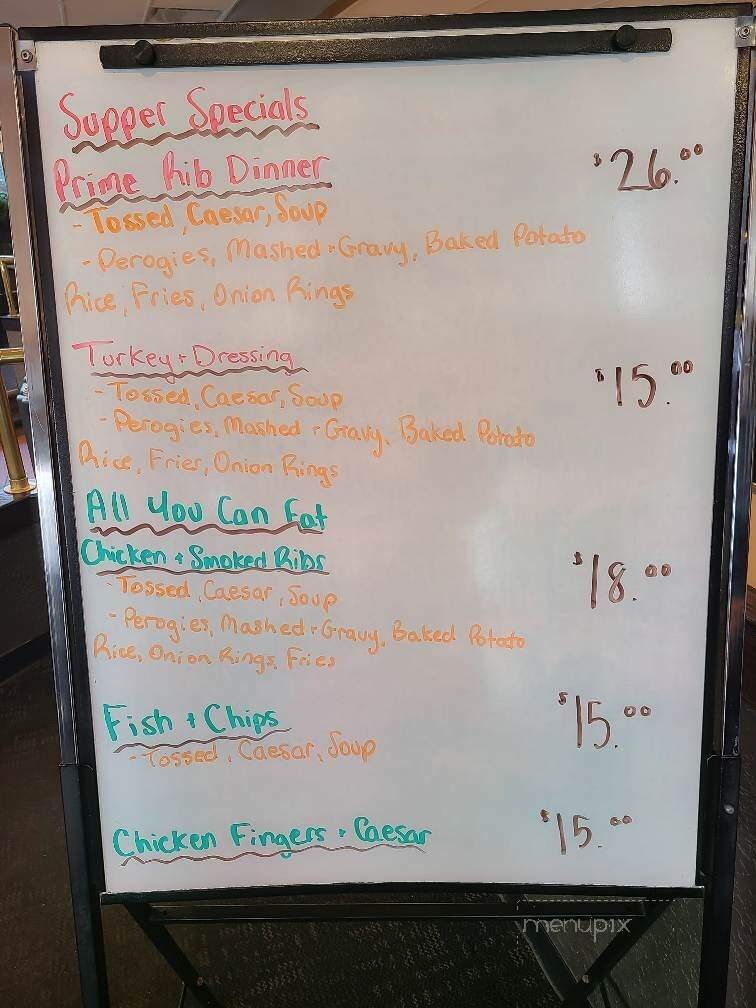 Supper Specials
Prime Rib Dinner $26.00
- Tossed, Caesar, Soup
- Perogies, Mashed + Gravy, Baked Potato
Rice, Fries, Onion Rings
Turkey + Dressing $15.00
- Tossed, Caesar, Soup
- Perogies, Mashed + Gravy, Baked Potato
Rice, Fries, Onion Rings
All You Can Eat
Chicken + Smoked Ribs $18.00
- Tossed, Caesar, Soup
- Perogies, Mashed + Gravy, Baked Potato
Rice, Onion Rings, Fries
Fish + Chips $15.00
- Tossed, Caesar, Soup
Chicken Fingers + Caesar $15.00
menupix